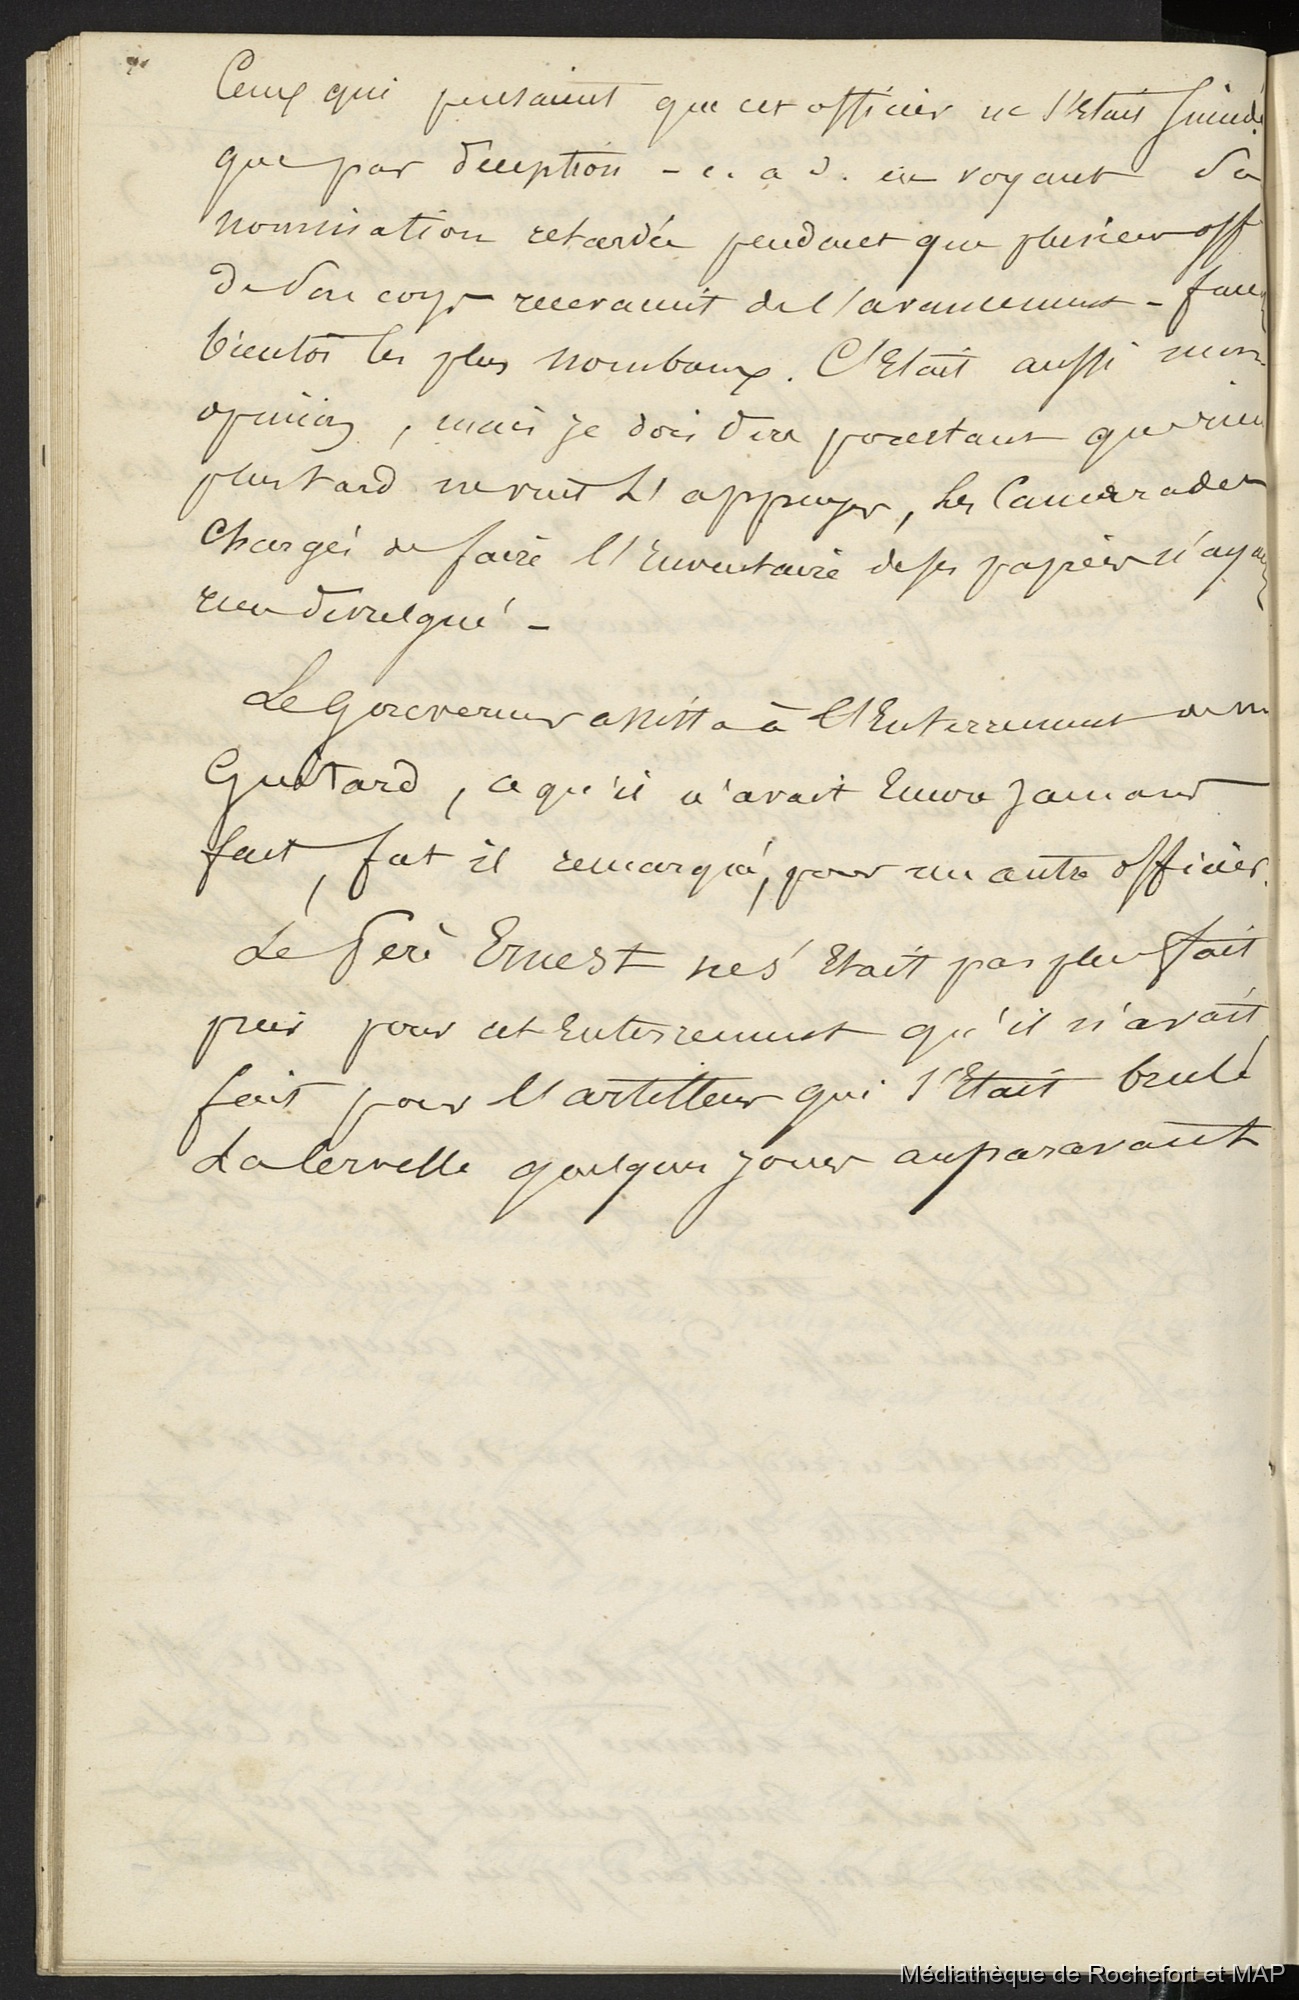 Ceux qui pensaient que cet officier ne s'était suicidé
que par déception - c. a d. en voyant sa
nomination retardée pendant que plusieurs off
de son corps recevaient de l'avancement -
bientôt les plus nombreux. C'Etait aussi mon
opinion, mais je dois dire pourtant que rien
plus tard ne vint l'appuyer, les Camarades
Chargés de faire l'Inventaire de ses papiers n'ayant
rien divulgué -
Le Gouverneur assista à l'Enterrement de M
Guitard, ce qu'il n'avait Encore jamais
fait, fut il remarqué, pour un autre officier.
Le Père Ernest ne s'Etait pas plus fait
prier pour cet Enterrement qu'il n'avait
fait pour l'artilleur qui s'Etait brulé
La Cervelle quelques jours auparavant
Médiathèque de Rochefort et MAP